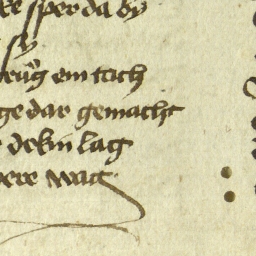 sper da by
sy
ein tuch
ge dar gemacht
dekin lag
were was